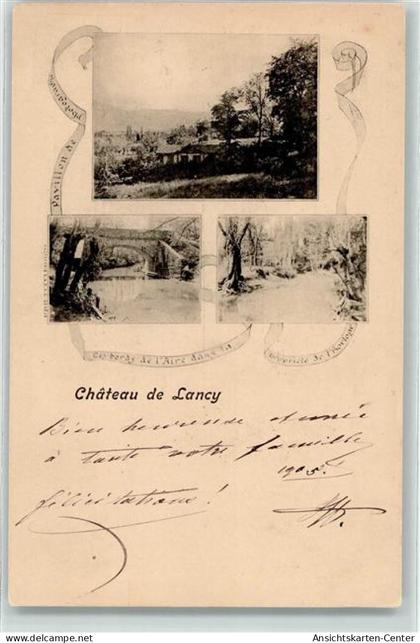 Pavillon de photographie
Les bords de l'Aire dans la
propriété de l'horloge
Château de Lancy
Bien heureuse année
à toute votre famille
1905.
félicitations!
www.ansichtskarten-center.de
Ansichtskarten-Center